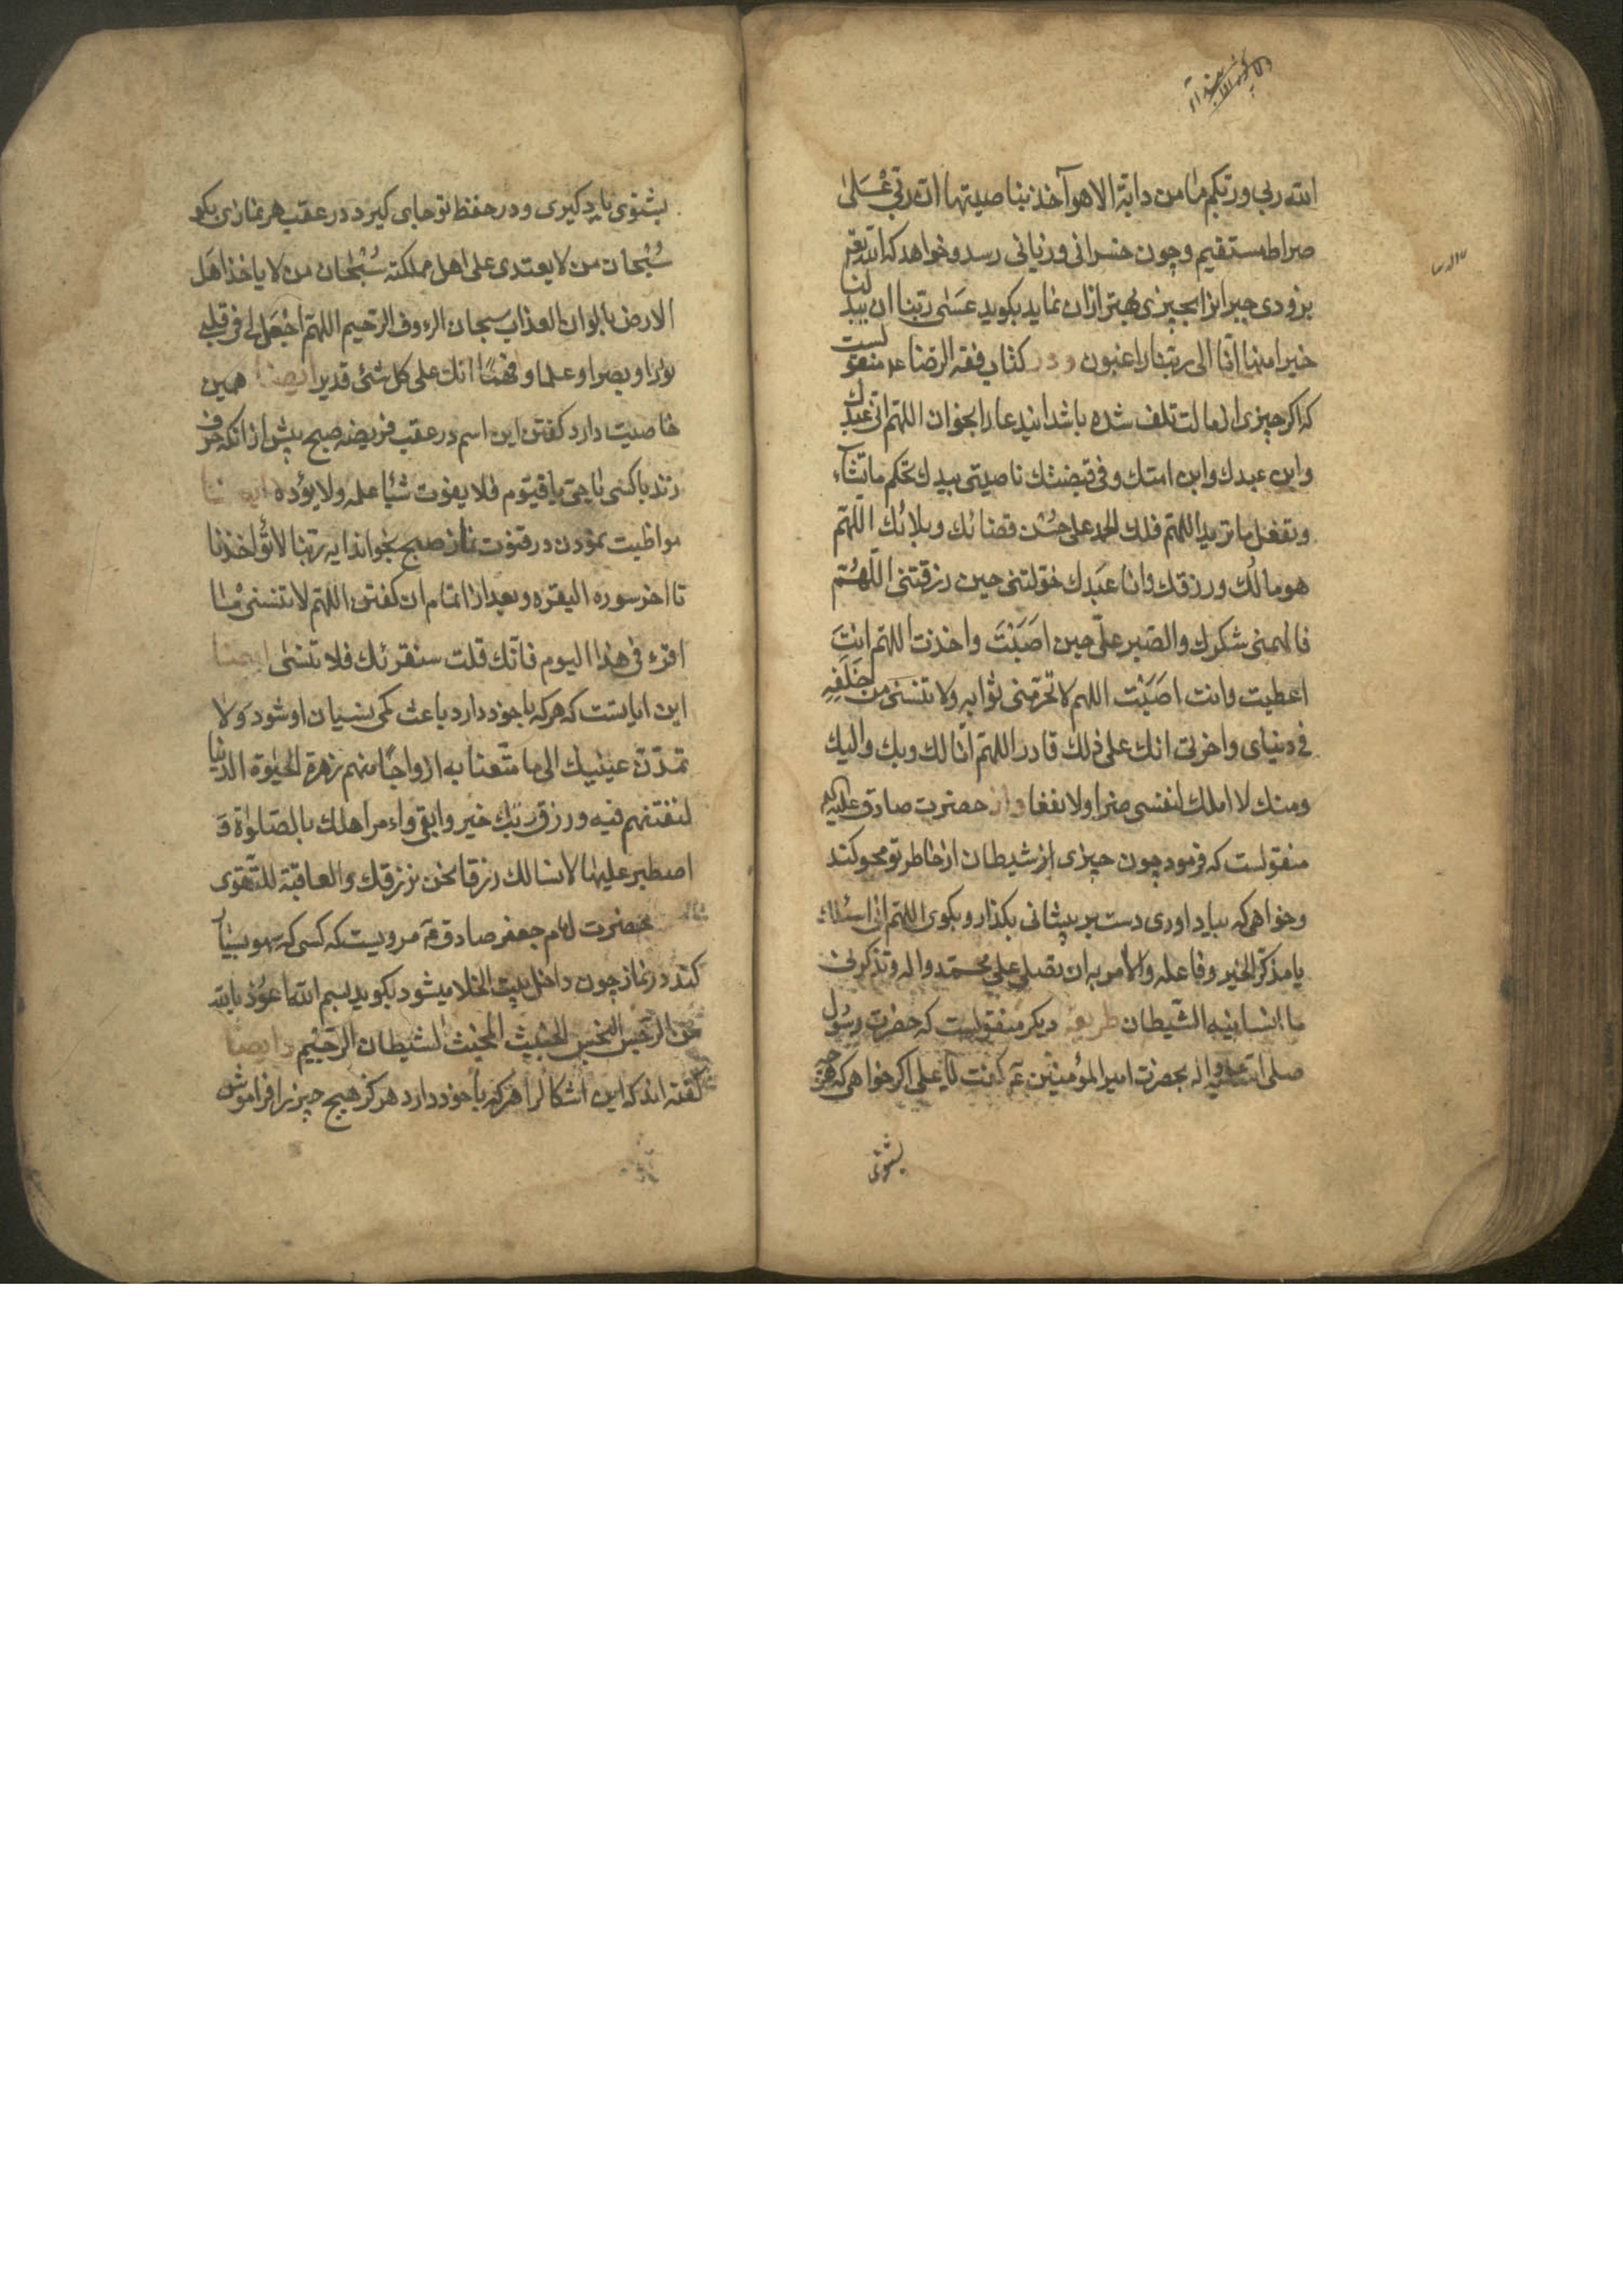 الله ربي وربكم ما من دابة الا هو آخذ بناصيتها ان ربي على
صراط مستقيم وچون خسرانی و زیانی رسد و خواهد که الله تعم
بزودی جبر انرا بچیزی بهتر از ان نماید بکوید عسى ربنا ان يبدلنا
خيرا منها انا الى ربنا راغبون و در کتاب فقه الرضا ع منقولست
که اکر چیزی از مالت تلف شده باشد ایندعا را بخوان اللهم انی عبدك
وابن عبدك وابن امتك وفی قبضتك ناصيتی بيدك تحكم ما تشاء
وتفعل ما تريد اللهم فلك الحمد علی حسن قضائك وبلائك اللهم
هو مالك ورزقك وانا عبدك خولتنی حين رزقتنی اللهم
فالهمنی شكرك والصبر علی حين اصبت واخذت اللهم انت
اعطيت وانت اصبت اللهم لا تحرمنی ثوابه ولا تنسنی من خلفه
فی دنيای واخرتی انك علی ذلك قادر اللهم انا لك وبك واليك
ومنك لا املك لنفسی ضرا ولا نفعا و از حضرت صادق علیه
منقولست که فرمود چون چیزی از شیطان از خاطر تو محو کند
و خواهی که بیاد اوری دست بر پیشانی بکذار و بکوی اللهم انی اسئلك
يا مذكر الخير وفاعله والآمر به ان تصلی علی محمد واله وتذكرنی
ما انسانيه الشيطان طریقه دیکر منقولست که حضرت رسول
صلی الله علیه و اله بحضرت امیر المؤمنین ع کفت یا علی اکر خواهی که هر چه
بشنوی
بشنوی یاد کیری و در حفظ تو جای کیرد در عقب هر نمازی بکو
سبحان من لا يعتدی علی اهل مملكته سبحان من لا ياخذ اهل
الارض بالوان العذاب سبحان الرءوف الرحيم اللهم اجعل لی فی قلبی
نورا وبصرا وعلما وفهما انك علی كل شئ قدير ایضا همین
خاصیت دارد کفتن این اسم در عقب فریضه صبح پیش از انکه حرف
زند با کسی یا حی یا قیوم فلا يفوت شيئا علمه ولا يؤده ایضا
مواظبت نمودن در قنوت نماز صبح بخواند ایه ربنا لا تؤاخذنا
تا اخر سوره البقره و بعد از اتمام ان کفتن اللهم لا تنسنی ما
اقرء فی هذا اليوم فانك قلت سنقرئك فلا تنسی ایضا
این ایاتست که هر که با خود دارد باعث کمی نسیان او شود ولا
تمدن عينيك الی ما متعنا به ازواجا منهم زهرة الحيوة الدنيا
لنفتنهم فيه ورزق ربك خير وابقی وامر اهلك بالصلوة و
اصطبر عليها لا نسالك رزقا نحن نرزقك والعاقبة للتقوی
بحضرت امام جعفر صادق ع مرویست که کسی که سهو بسیار
کند در نماز چون داخل بیت الخلا میشود بکوید بسم الله اعوذ بالله
من الرجس النجس الخبيث المخبث الشيطان الرجيم و ایضا
کفته اند که این اشکالرا هر که با خود دارد هرکز هیچ چیز را فراموش